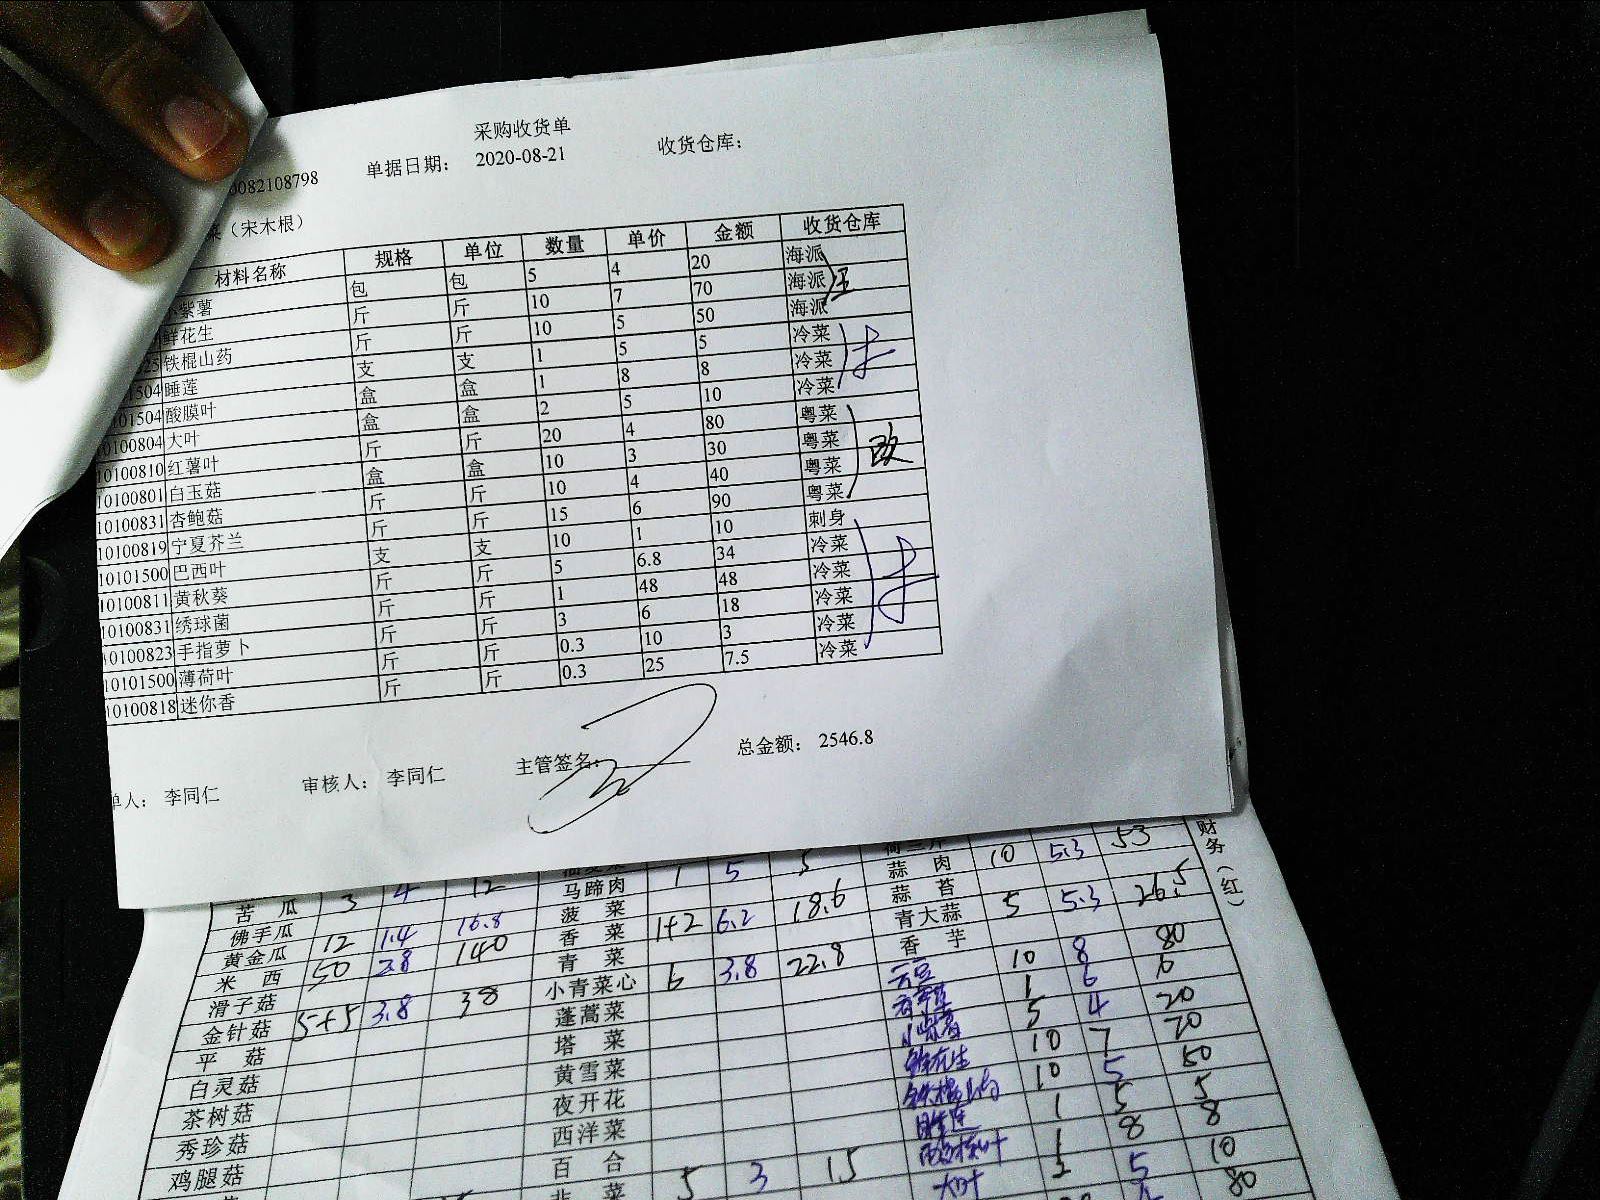 采购收货单
0082108798 单据日期： 2020-08-21 收货仓库：
菜（宋木根）
材料名称 规格 单位 数量 单价 金额 收货仓库
小紫薯 包 包 5 4 20 海派
鲜花生 斤 斤 10 7 70 海派
25 铁棍山药 斤 斤 10 5 50 海派
1504 睡莲 支 支 1 5 5 冷菜
10101504 酸膜叶 盒 盒 1 8 8 冷菜
10100804 大叶 盒 盒 2 5 10 冷菜
10100810 红薯叶 斤 斤 20 4 80 粤菜
10100801 白玉菇 盒 盒 10 3 30 粤菜
10100831 杏鲍菇 斤 斤 10 4 40 粤菜
10100819 宁夏芥兰 斤 斤 15 6 90 粤菜
10101500 巴西叶 支 支 10 1 10 刺身
10100811 黄秋葵 斤 斤 5 6.8 34 冷菜
10100831 绣球菌 斤 斤 1 48 48 冷菜
10100823 手指萝卜 斤 斤 3 6 18 冷菜
10101500 薄荷叶 斤 斤 0.3 10 3 冷菜
10100818 迷你香 斤 斤 0.3 25 7.5 冷菜
单人： 李同仁 审核人： 李同仁 主管签名： 总金额： 2546.8
财务（红）
苦瓜 3 4 12 马蹄肉 1 5 5 蒜肉 10 5.3 53
佛手瓜 菠菜 蒜苔
黄金瓜 12 1.4 16.8 香菜 1+2 6.2 18.6 青大蒜 5 5.3 26.5
米西 50 2.8 140 青菜 香芋
滑子菇 小青菜心 6 3.8 22.8 云豆 10 8 80
金针菇 5+5 3.8 38 蓬蒿菜 1 6 6
平菇 塔菜 小紫薯 5 4 20
白灵菇 黄雪菜 鲜花生 10 7 70
茶树菇 夜开花 铁棍山药 10 5 50
秀珍菇 西洋菜 睡莲 1 5 5
鸡腿菇 百合 酸膜叶 1 8 8
韭菜 5 3 15 大叶 2 5 10
80